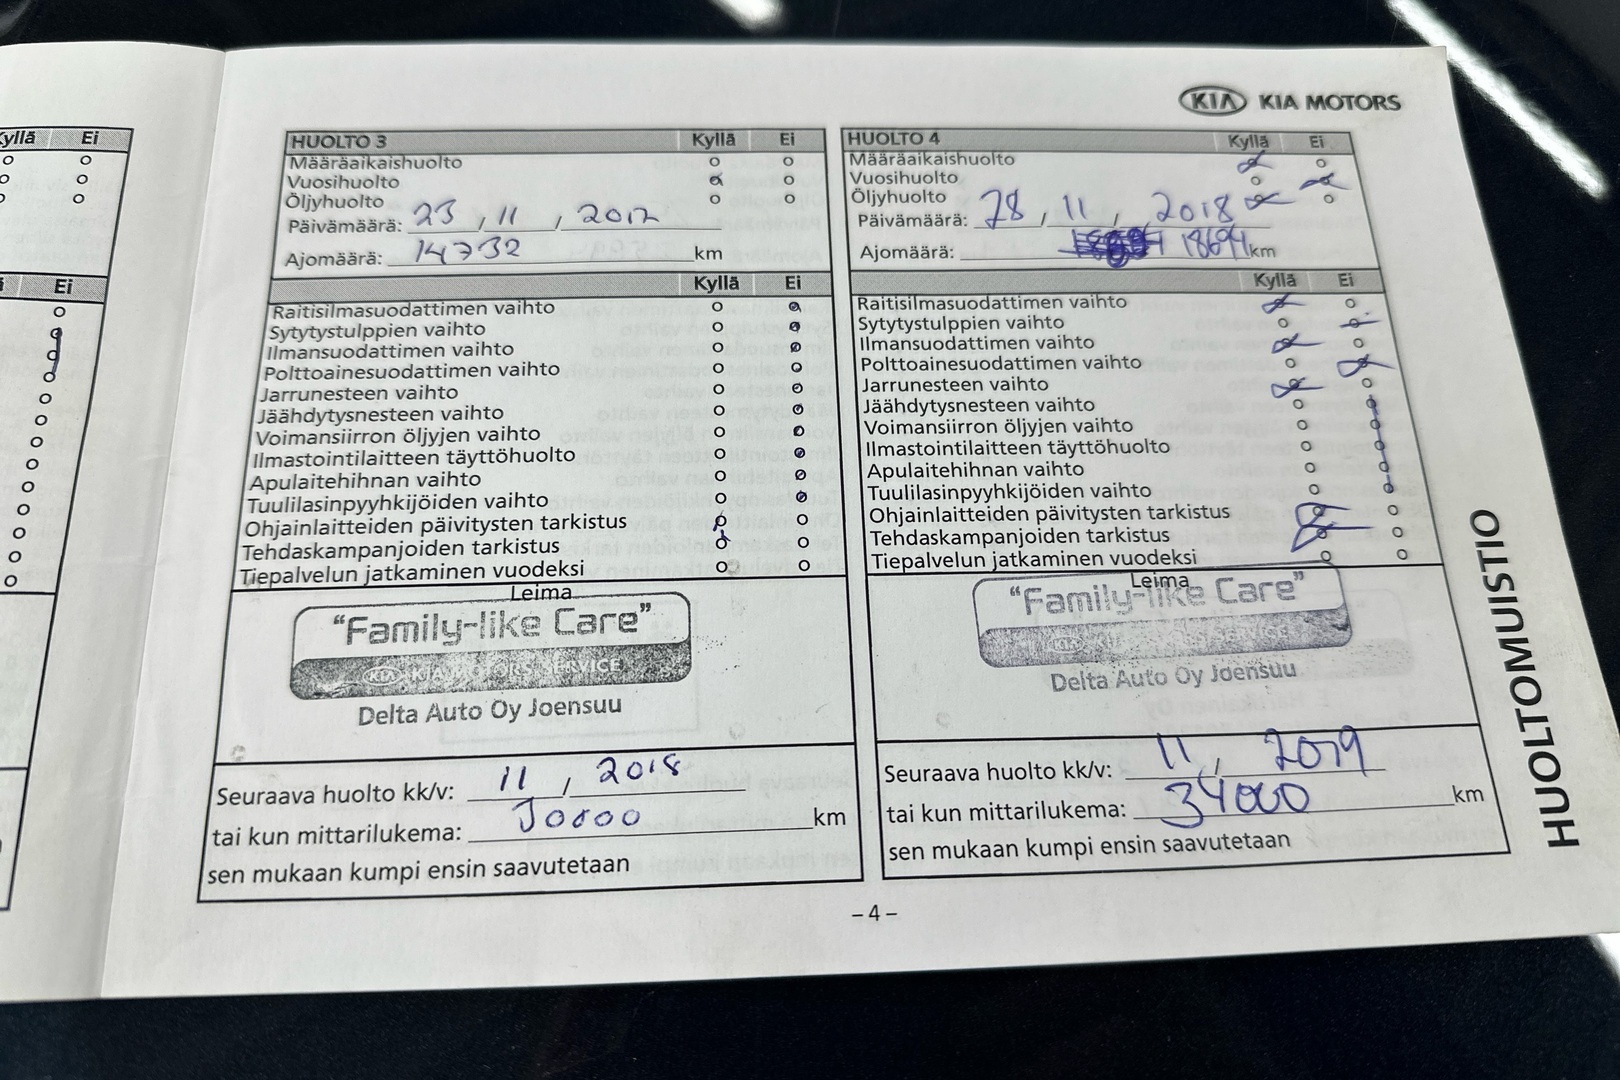 KIA KIA MOTORS
Kyllä Ei
Ei
HUOLTO 3 Kyllä Ei
Määräaikaishuolto
Vuosihuolto
Öljyhuolto
Päivämäärä: 23, 11, 2017
Ajomäärä: 14732 km
Kyllä Ei
Raitisilmasuodattimen vaihto
Sytytystulppien vaihto
Ilmansuodattimen vaihto
Polttoainesuodattimen vaihto
Jarrunesteen vaihto
Jäähdytysnesteen vaihto
Voimansiirron öljyjen vaihto
Ilmastointilaitteen täyttöhuolto
Apulaitehihnan vaihto
Tuulilasinpyyhkijöiden vaihto
Ohjainlaitteiden päivitysten tarkistus
Tehdaskampanjoiden tarkistus
Tiepalvelun jatkaminen vuodeksi
Leima
"Family-like Care"
KIA KIA MOTORS SERVICE
Delta Auto Oy Joensuu
Seuraava huolto kk/v: 11, 2018
tai kun mittarilukema: 30000 km
sen mukaan kumpi ensin saavutetaan
HUOLTO 4 Kyllä Ei
Määräaikaishuolto
Vuosihuolto
Öljyhuolto
Päivämäärä: 28, 11, 2018
Ajomäärä: 18694 km
Kyllä Ei
Raitisilmasuodattimen vaihto
Sytytystulppien vaihto
Ilmansuodattimen vaihto
Polttoainesuodattimen vaihto
Jarrunesteen vaihto
Jäähdytysnesteen vaihto
Voimansiirron öljyjen vaihto
Ilmastointilaitteen täyttöhuolto
Apulaitehihnan vaihto
Tuulilasinpyyhkijöiden vaihto
Ohjainlaitteiden päivitysten tarkistus
Tehdaskampanjoiden tarkistus
Tiepalvelun jatkaminen vuodeksi
Leima
"Family-like Care"
KIA KIA MOTORS SERVICE
Delta Auto Oy Joensuu
Seuraava huolto kk/v: 11, 2019
tai kun mittarilukema: 34000 km
sen mukaan kumpi ensin saavutetaan
HUOLTOMUISTIO
– 4 –